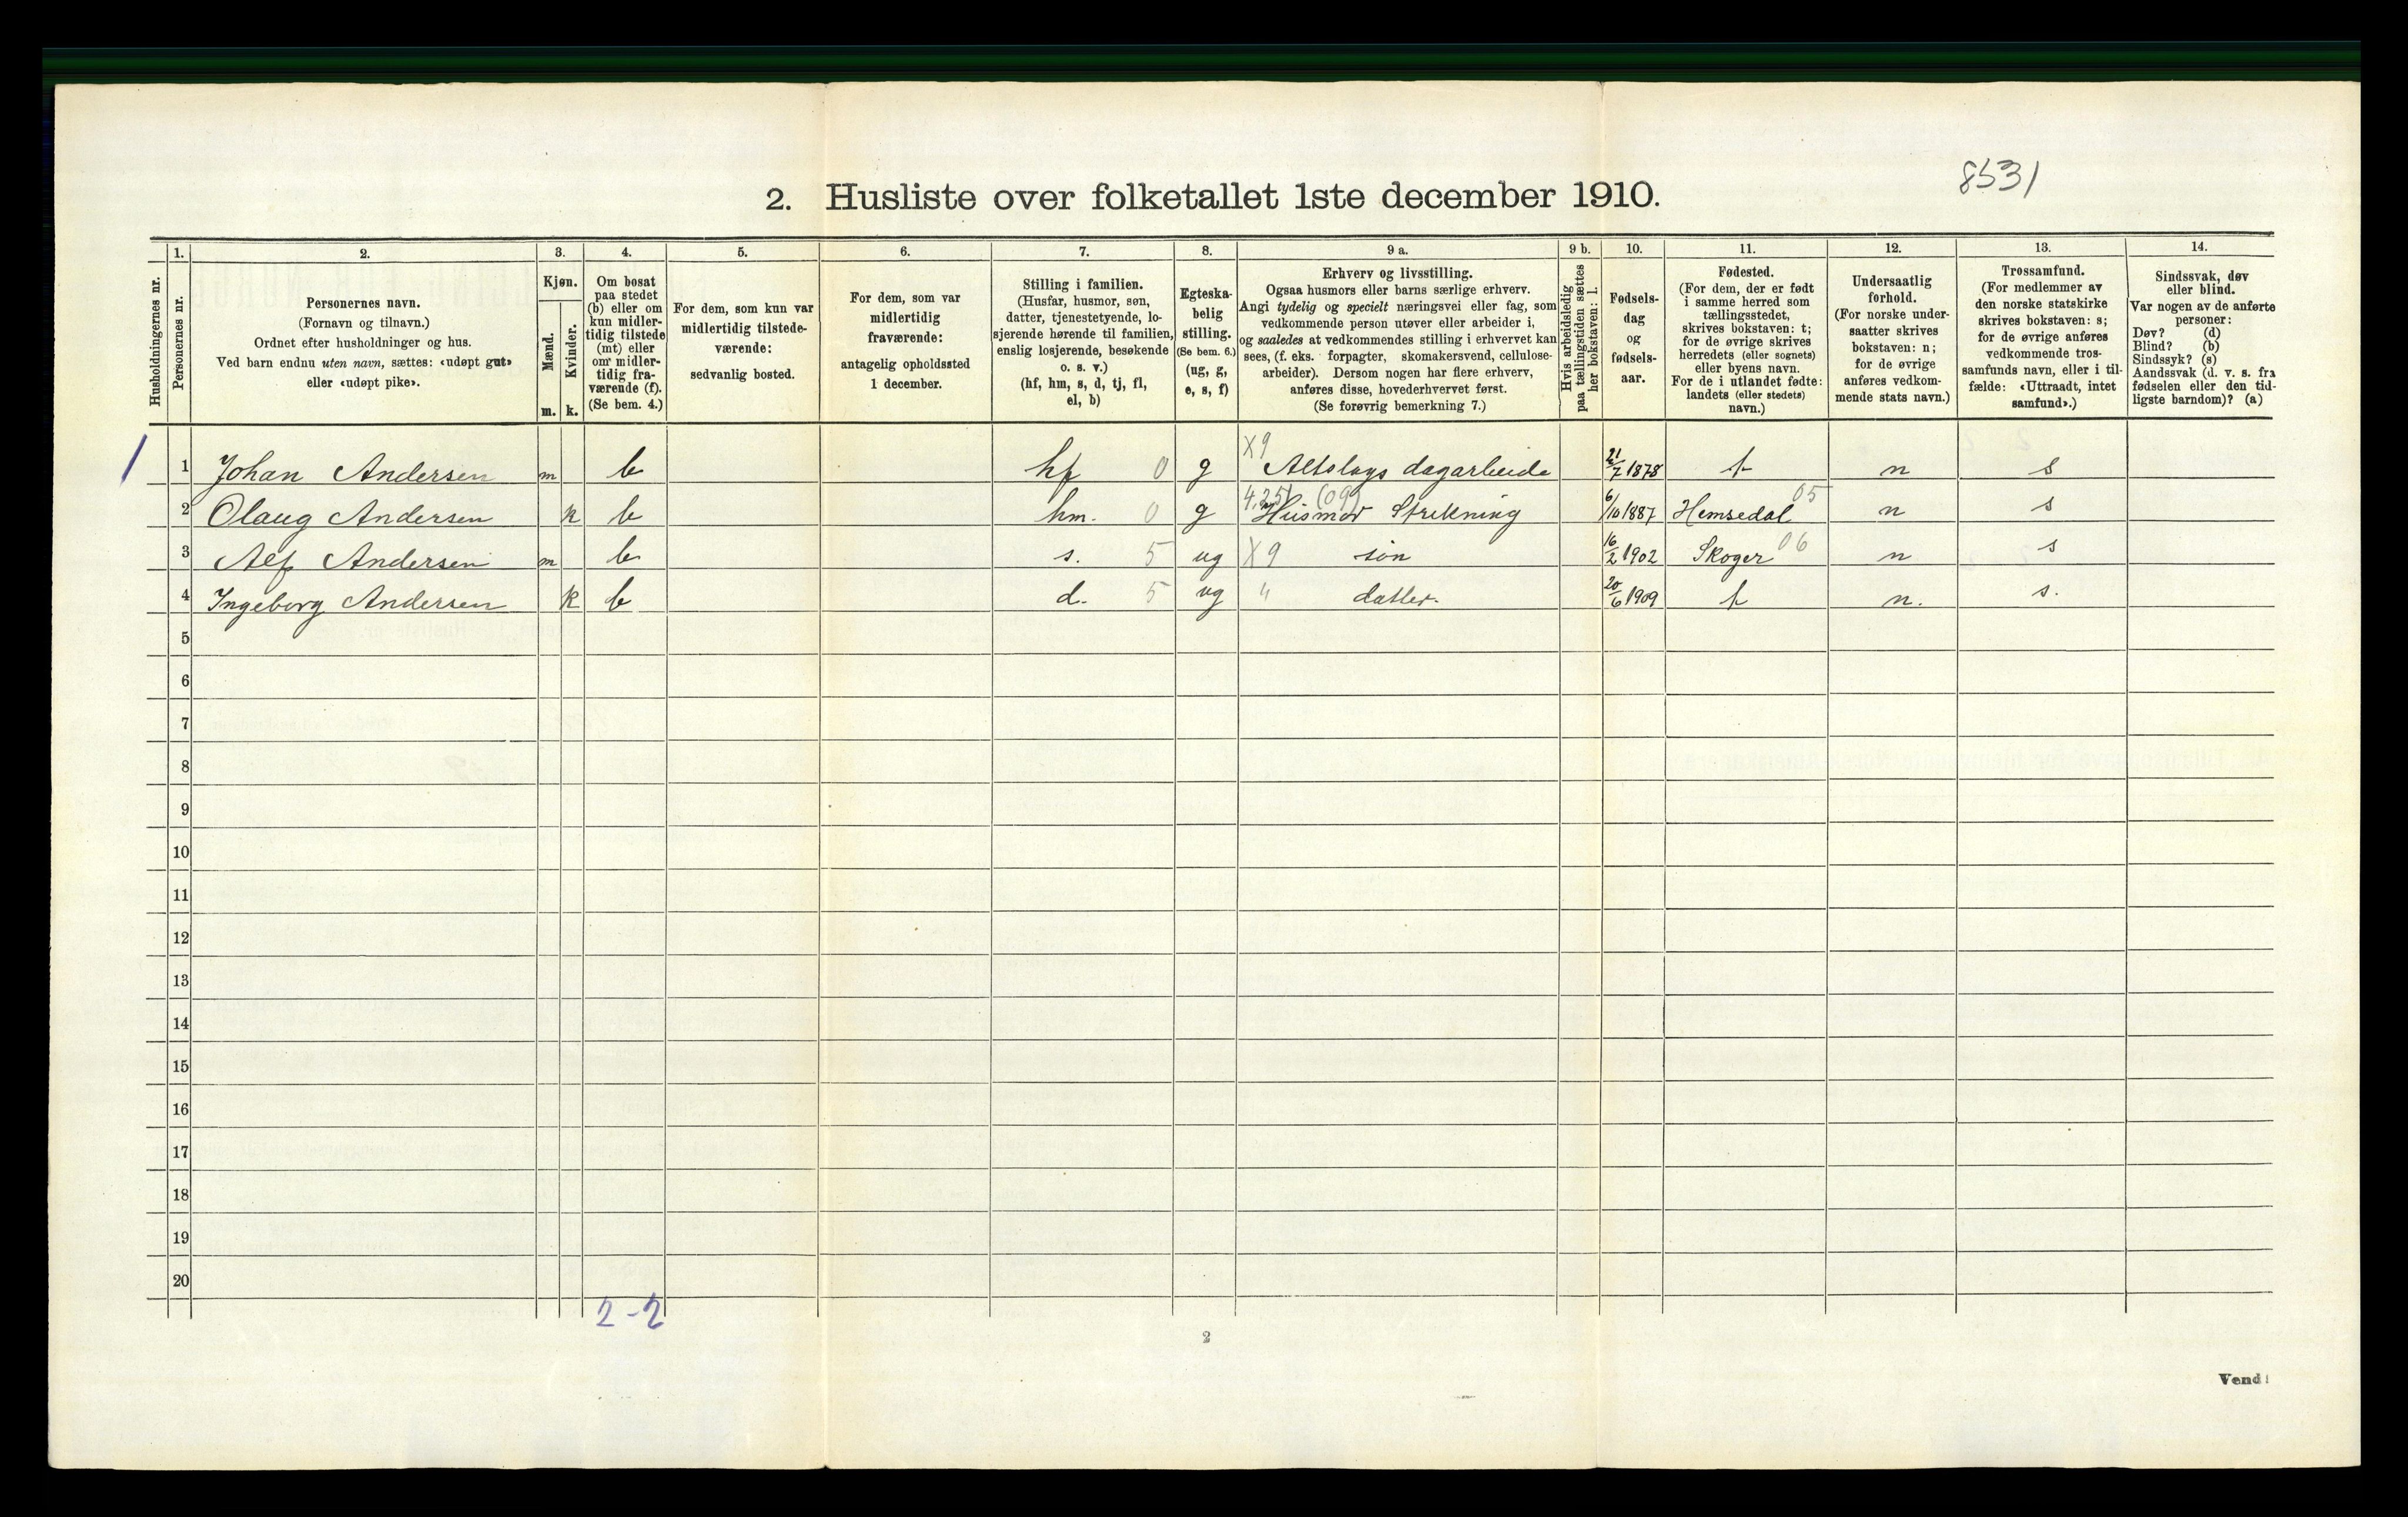 8531
2. Husliste over folketallet 1ste december 1910.
Husholdningernes nr.
1.
Personernes nr.
2.
Personernes navn.
(Fornavn og tilnavn.)
Ordnet efter husholdninger og hus.
Ved barn endnu uten navn, sættes: «udøpt gut»
eller «udøpt pike».
3.
Kjøn.
Mænd.
Kvinder.
m. k.
4.
Om bosat
paa stedet
(b) eller om
kun midler-
tidig tilstede
(mt) eller
om midler-
tidig fra-
værende (f).
(Se bem. 4.)
5.
For dem, som kun var
midlertidig tilstede-
værende:
sedvanlig bosted.
6.
For dem, som var
midlertidig
fraværende:
antagelig opholdssted
1 december.
7.
Stilling i familien.
(Husfar, husmor, søn,
datter, tjenestetyende, lo-
sjerende hørende til familien,
enslig losjerende, besøkende
o. s. v.)
(hf, hm, s, d, tj, fl,
el, b)
8.
Egteska-
belig
stilling.
(Se bem. 6.)
(ug, g,
e, s, f)
9 a.
Erhverv og livsstilling.
Ogsaa husmors eller barns særlige erhverv.
Angi tydelig og specielt næringsvei eller fag, som
vedkommende person utøver eller arbeider i,
og saaledes at vedkommendes stilling i erhvervet kan
sees, (f. eks. forpagter, skomakersvend, cellulose-
arbeider). Dersom nogen har flere erhverv,
anføres disse, hovederhvervet først.
(Se forøvrig bemerkning 7.)
9 b.
Hvis arbeidsledig
paa tællingstiden sættes
her bokstaven: l.
10.
Fødsels-
dag
og
fødsels-
aar.
11.
Fødested.
(For dem, der er født
i samme herred som
tællingsstedet,
skrives bokstaven: t;
for de øvrige skrives
herredets (eller sognets)
eller byens navn.
For de i utlandet fødte:
landets (eller stedets)
navn.)
12.
Undersaatlig
forhold.
(For norske under-
saatter skrives
bokstaven: n;
for de øvrige
anføres vedkom-
mende stats navn.)
13.
Trossamfund.
(For medlemmer av
den norske statskirke
skrives bokstaven: s;
for de øvrige anføres
vedkommende tros-
samfunds navn, eller i til-
fælde: «Uttraadt, intet
samfund».)
14.
Sindssvak, døv
eller blind.
Var nogen av de anførte
personer:
Døv? (d)
Blind? (b)
Sindssyk? (s)
Aandssvak (d. v. s. fra
fødselen eller den tid-
ligste barndom)? (a)
1 Johan Andersen m b hf 0 g X9 Altslags dagarbeide 21/7 1878 t n s
2 Olaug Andersen k b hm. 0 g 4,25 (09) Husmor Strikning 6/10 1887 Hemsedal 05 n s
3 Alf Andersen m b s. 5 ug X9 søn 16/2 1902 Skoger 06 n s
4 Ingeborg Andersen k b d. 5 ug " datter. 20/6 1909 t n. s.
5
6
7
8
9
10
11
12
13
14
15
16
17
18
19
20
2-2
2
Vend!